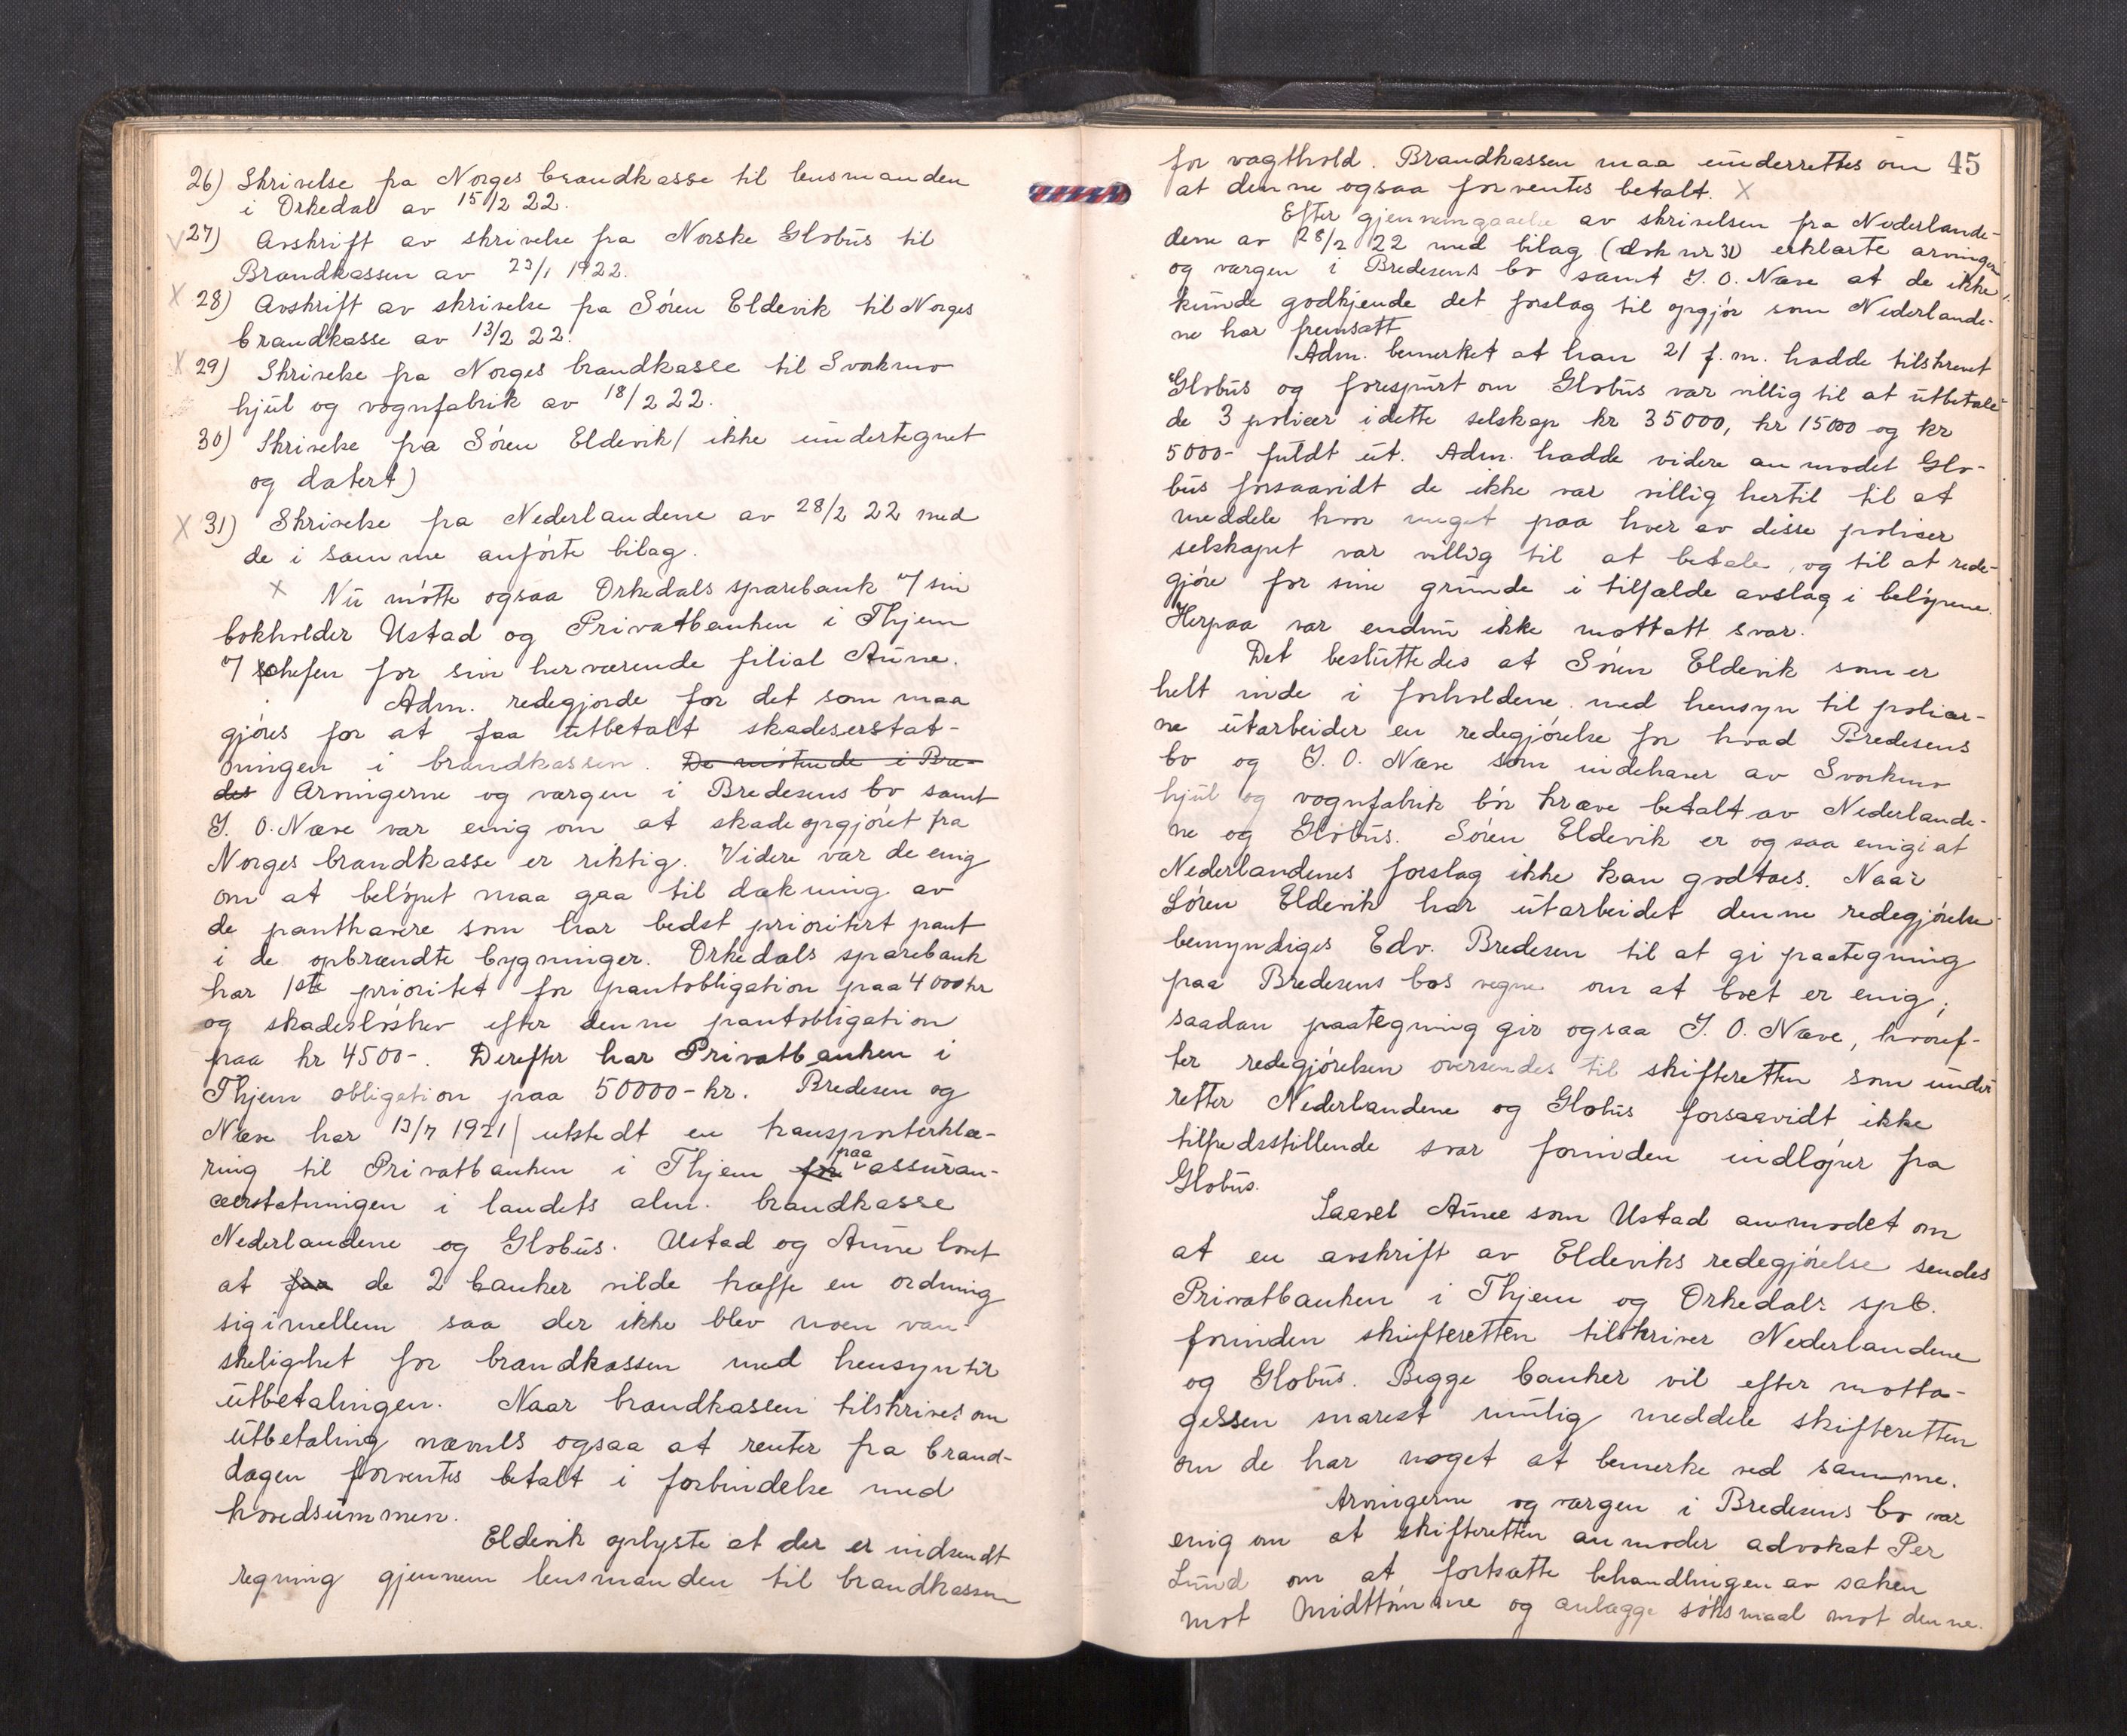 26) Skrivelse fra Norges brandkasse til lensmanden
i Orkedal av 15/2 22.
27) Avskrift av skrivelse fra Norske Globus til
Brandkassen av 23/1 1922.
X 28) Avskrift av skrivelse fra Sören Eldevik til Norges
brandkasse av 13/2 22.
X 29) Skrivelse fra Norges brandkasse til Svorkmo
hjul og vognfabrik av 18/2 22.
30) Skrivelse fra Sören Eldevik (ikke undertegnet
og datert)
X 31) Skrivelse fra Nederlandene av 28/2 22 med
de i samme anförte bilag.
X Nu mötte ogsaa Orkedals sparebank v/ sin
bokholder Ustad og Privatbanken i Thjem
v/ chefen for sin herværende filial Aune.
Adm. redegjorde for det som maa
gjöres for at faa utbetalt skadeserstat-
ningen i brandkassen. De mötende i Bre-
des Arvingerne og værgen i Bredesens bo samt
J. O. Næve var enig om at skadeopgjöret fra
Norges brandkasse er riktig. Videre var de enig
om at belöpet maa gaa til dækning av
de panthavere som har bedst prioritert pant
i de opbrændte bygninger. Orkedals sparebank
har 1ste prioritet for pantobligation paa 4000 kr
og skadeslösbrev efter denne pantobligation
paa kr 4500-. Derefter har Privatbanken i
Thjem obligation paa 50000- kr. Bredesen og
Næve har 13/7 1921 utstedt en transporterklæ-
ring til Privatbanken i Thjem for paa assuran-
ceerstatningen i landets alm. brandkasse
Nederlandene og Globus. Ustad og Aune lovet
at faa de 2 banker vilde træffe en ordning
sig imellem saa der ikke blev noen van-
skelighet for brandkassen med hensyn til
utbetalingen. Naar brandkassen tilskrives om
utbetaling nævnes ogsaa at renter fra brand-
dagen forventes betalt i forbindelse med
hovedsummen.
Eldevik oplyste at der er indsendt
regning gjennem lensmanden til brandkassen
for vagthold. Brandkassen maa underrettes om 45
at denne ogsaa forventes betalt. X
Efter gjennemgaaelse av skrivelsen fra Nederlande-
dene av 28/2 22 med bilag (dok nr 31) erklærte arvingerne
og værgen i Bredesens bo samt J. O. Næve at de ikke
kunde godkjende det forslag til opgjör som Nederlande-
ne har fremsatt.
Adm. bemerket at han 21 f. m. hadde tilskrevet
Globus og forespurt om Globus var villig til at utbetale
de 3 policer i dette selskap kr 35000, kr 15000 og kr
5000- fuldt ut. Adm. hadde videre anmodet Glo-
bus forsaavidt de ikke var villig hertil til at
meddele hvor meget paa hver av disse policer
selskapet var villig til at betale, og til at rede-
gjöre for sine grunde i tilfælde avslag i belöpene.
Herpaa var endnu ikke mottatt svar.
Det besluttedes at Sören Eldevik som er
helt inde i forholdene med hensyn til policer-
ne utarbeider en redegjörelse for hvad Bredesens
bo og J. O. Næve som indehaver av Svorkmo
hjul og vognfabrik bör kræve betalt av Nederlande-
ne og Globus. Sören Eldevik er ogsaa enig i at
Nederlandenes forslag ikke kan godtaes. Naar
Sören Eldevik har utarbeidet denne redegjörelse
bemyndiges Edv. Bredesen til at gi paategning
paa Bredesens bos vegne om at boet er enig;
saadan paategning gir ogsaa J. O. Næve, hvoref-
ter redegjörelsen oversendes til skifteretten som under
retter Nederlandene og Globus forsaavidt ikke
tilfredsstillende svar forinden indlöper fra
Globus.
Saavel Aune som Ustad anmodet om
at en avskrift av Eldeviks redegjörelse sendes
Privatbanken i Thjem og Orkedals spb.
forinden skifteretten tilskriver Nederlandene
og Globus. Begge banker vil efter motta-
gelsen snarest mulig meddele skifteretten
om de har noget at bemerke ved samme.
Arvingerne og værgen i Bredesens bo var
enig om at skifteretten anmoder advokat Per
Lund om at fortsætte behandlingen av saken
mot Midttömme og anlægge söksmaal mot denne.